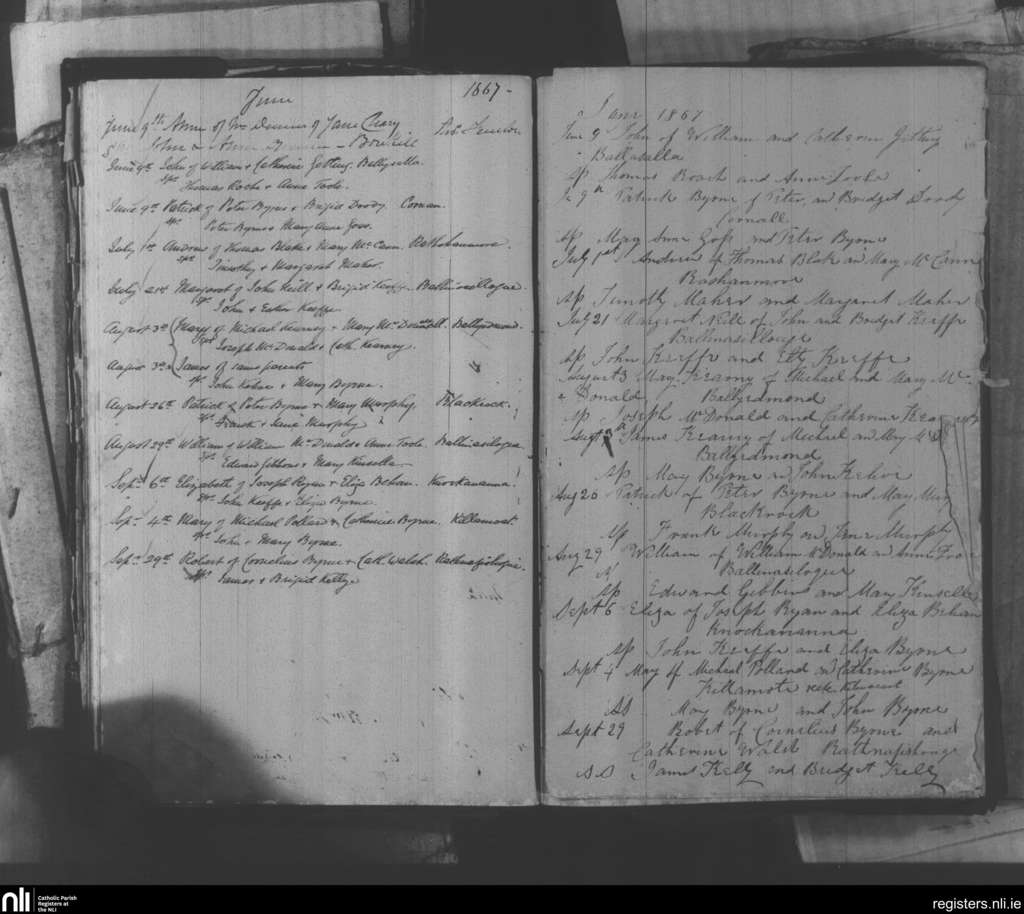 June 1867-
June 9th Anne of Wm & Jane
John & Anne
June 9th John of William & Catherine Gutting. Ballyvilla.
Sps Thomas Roche & Anne Toole.
June 9th Patrick of Peter Byrne & Brigid Doody
Sps Peter Byrne & Mary Anne Goss.
July 1st Andrew of Thomas Blake & Mary McCann. Rathshanmore.
Sps Timothy & Margaret Maher.
July 21st Margaret of John Neill & Brigid Keeffe. Ballinasillogue
Sps John & Esther Keeffe.
August 3rd Mary of Michael Kearney & Mary McDonald. Ballyredmond.
Sps Joseph McDonald & Cath. Kearney.
August 3rd James of same parents "
Sps John & Mary Byrne.
August 26th Patrick of Peter Byrne & Mary Murphy. Blackrock.
Sps Frank & Jane Murphy
August 29th William of William McDonald & Anne Toole. Ballinasilogue
Sps Edward Gibbons & Mary Kinsella
Sept. 6th Elizabeth of Joseph Ryan & Eliza Behan. Knockananna.
Sps John Keeffe & Eliza Byrne
Sept. 4th Mary of Michael Pollard & Catherine Byrne. Killamoat.
Sps John & Mary Byrne.
Sept. 29th Robert of Cornelius Byrne & Cath. Walsh. Rathnafishogue.
Sps James & Brigid Kelly
June 1867
June 9 John of William and Catherin Gutting
Ballavalla
Sp Thomas Roach and Anne Toole
9th Patrick Byrne of Peter and Bridget Doody
Sp Mary Anne Goss and Peter Byrne
July 1st Andrew of Thomas Blake an Mary McCann
Rashanmore
Sp Timothy Maher and Margaret Maher
July 21 Margret Neill of John and Bridget Keeffe
Ballinasillouge
Sp John Keeffe and Keeffe
August 3 Mary Kearny of Michael and Mary Mc
Donald Ballyredmond
Sp Joseph McDonald and Catherine Kearny
Aug 3 James Kearny of Michael and Mary McD
Ballyredmond
Sp Mary Byrne an John
Aug 26 Patrick of Peter Byrne and Mary Mur
Blackrock
Sp Frank Murphy an Jane Murphy
Aug 29 William of William McDonald an Anne Toole
Ballinasilogue
Sp Edward Gibbins and Mary Kinsella
Sept 6 Eliza of Joseph Ryan and Eliza Behan
Knockananna
Sp John Keeffe and Eliza Byrne
Sept 4 Mary of Micheal Pollard an Catherine Byrne
Killamote
SS Mary Byrne and John Byrne
Sept 29 Robert of Cornelius Byrne and
Catherine Walsh Rathnafishouge
SS James Kelly and Bridget Kelly
nli Catholic Parish
Registers at
the NLI
registers.nli.ie